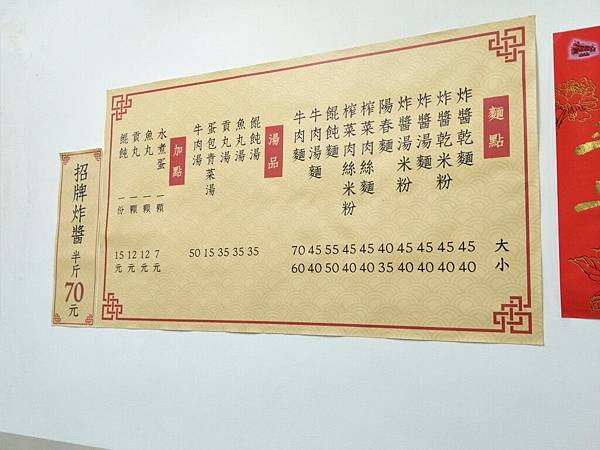 麵點 大 小
炸醬乾麵 45 40
炸醬乾米粉 45 40
炸醬湯麵 45 40
炸醬湯米粉 45 40
陽春麵 40 35
榨菜肉絲麵 45 40
榨菜肉絲米粉 45 40
餛飩麵 55 50
牛肉湯麵 45 40
牛肉麵 70 60
湯品
餛飩湯 35
魚丸湯 35
貢丸湯 35
蛋包青菜湯 15
牛肉湯 50
加點
水煮蛋 一顆 7元
魚丸 一顆 12元
貢丸 一顆 12元
餛飩 一份 15元
招牌炸醬半斤70元